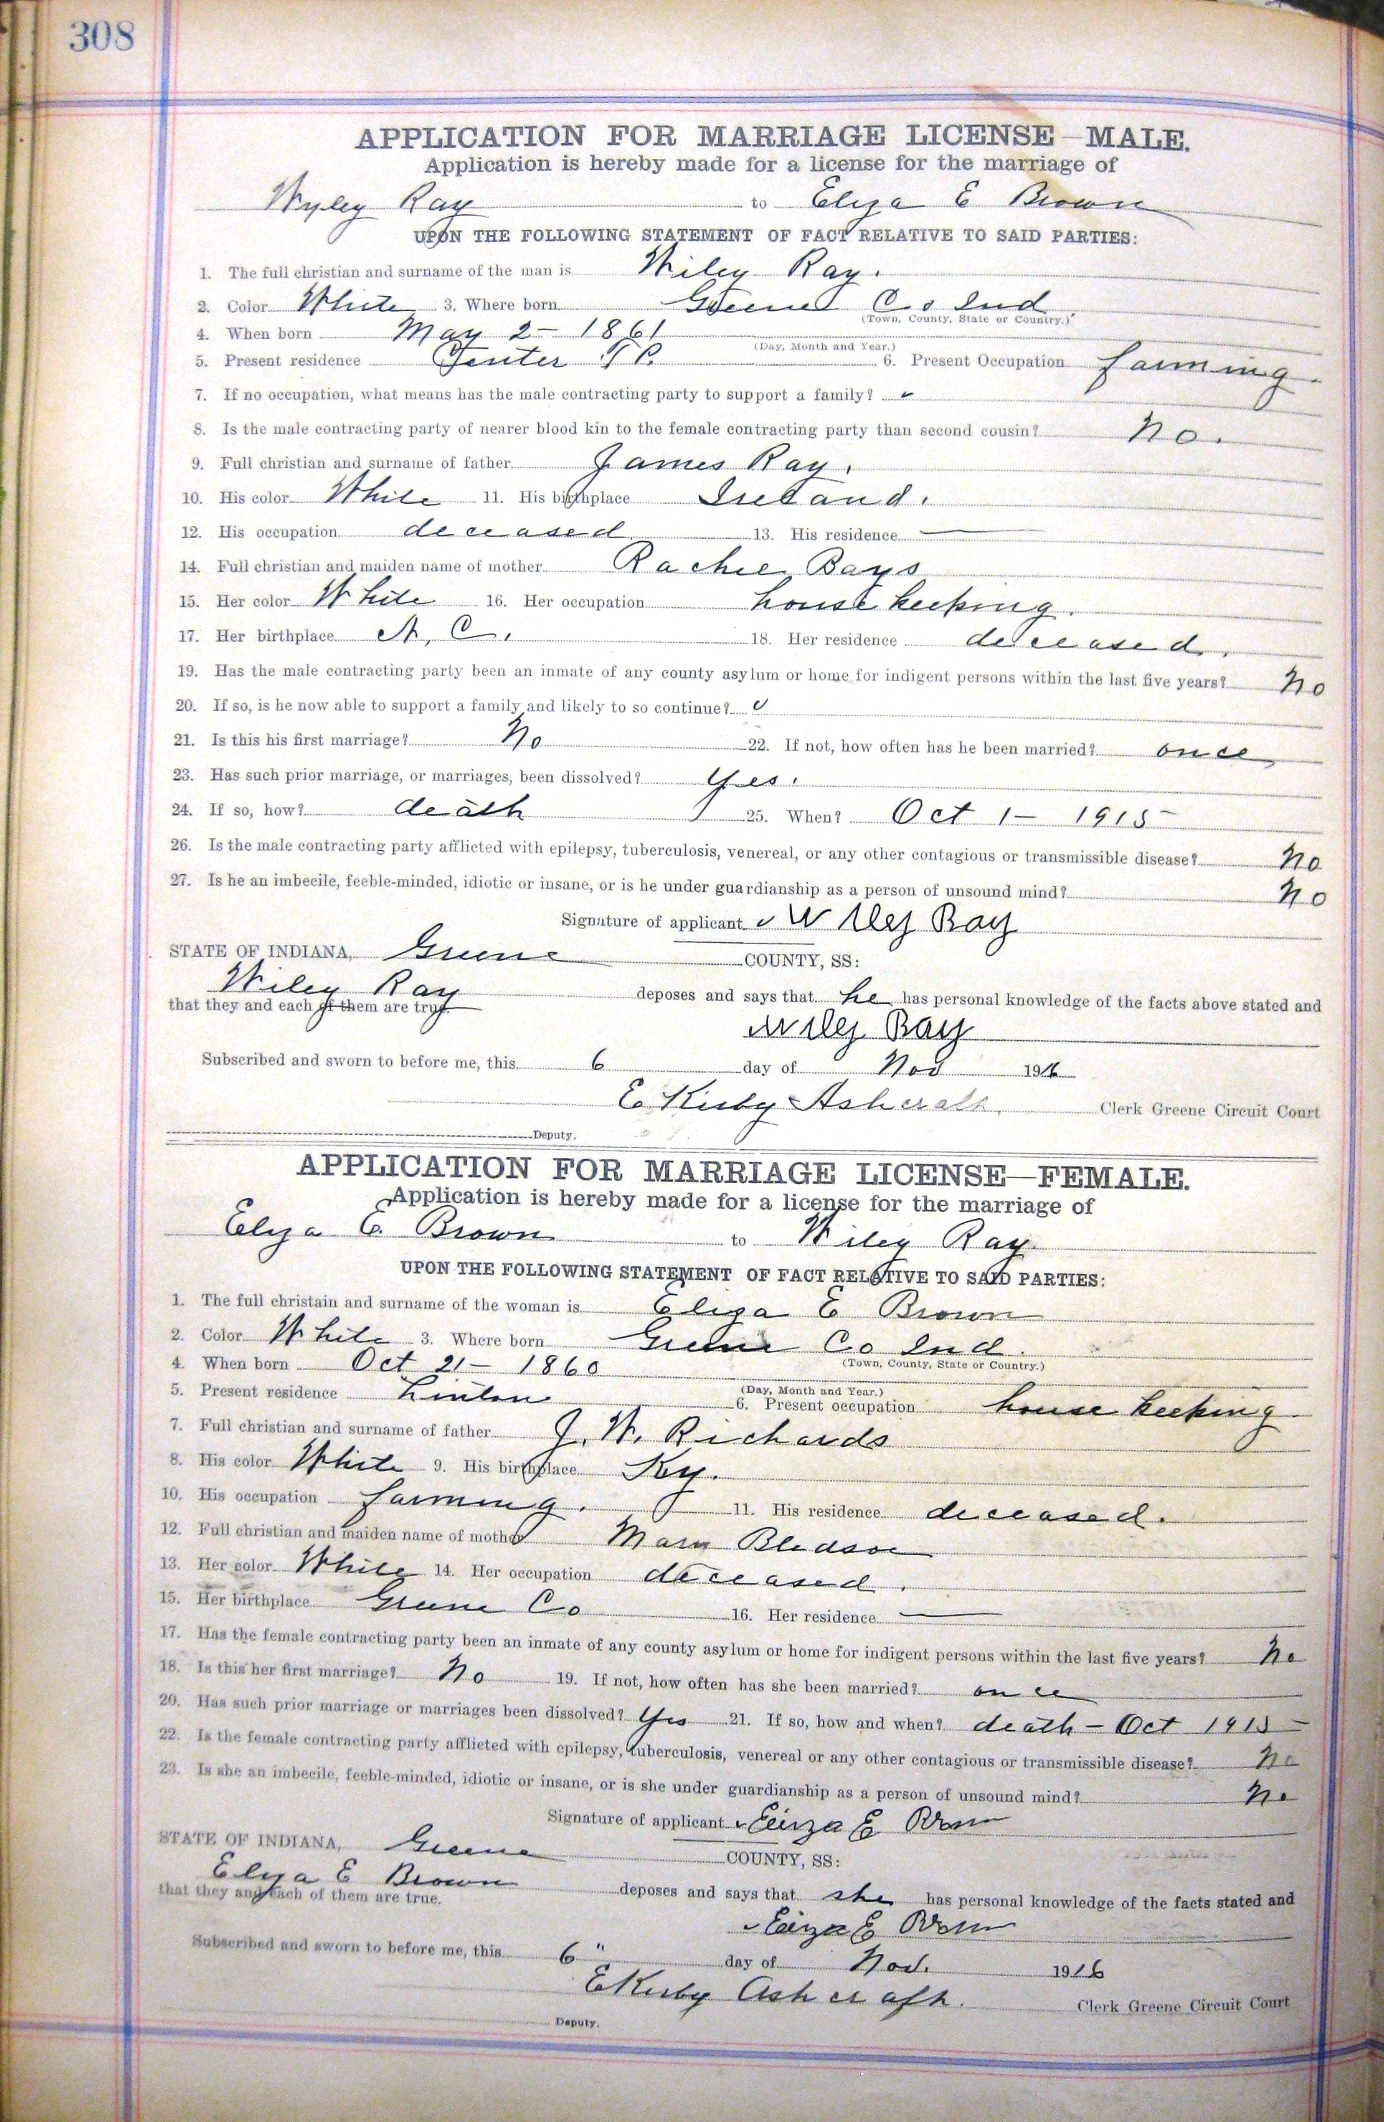 308
APPLICATION FOR MARRIAGE LICENSE—MALE.
Application is hereby made for a license for the marriage of
Wyley Ray to Eliza E Brown
UPON THE FOLLOWING STATEMENT OF FACT RELATIVE TO SAID PARTIES:
1. The full christian and surname of the man is Wiley Ray.
2. Color White 3. Where born Greene Co Ind
(Town, County, State or Country.)
4. When born May 2 - 1861
(Day, Month and Year.)
5. Present residence Center TP. 6. Present Occupation farming
7. If no occupation, what means has the male contracting party to support a family?
8. Is the male contracting party of nearer blood kin to the female contracting party than second cousin? No.
9. Full christian and surname of father James Ray.
10. His color White 11. His birthplace Ireland.
12. His occupation deceased 13. His residence —
14. Full christian and maiden name of mother Rachel Bays
15. Her color White 16. Her occupation house keeping.
17. Her birthplace N. C. 18. Her residence deceased.
19. Has the male contracting party been an inmate of any county asylum or home for indigent persons within the last five years? No
20. If so, is he now able to support a family and likely to so continue?
21. Is this his first marriage? No 22. If not, how often has he been married? once
23. Has such prior marriage, or marriages, been dissolved? Yes.
24. If so, how? death 25. When? Oct 1 - 1915
26. Is the male contracting party afflicted with epilepsy, tuberculosis, venereal, or any other contagious or transmissible disease? No
27. Is he an imbecile, feeble-minded, idiotic or insane, or is he under guardianship as a person of unsound mind? No
Signature of applicant Wiley Ray
STATE OF INDIANA, Greene COUNTY, SS:
Wiley Ray deposes and says that he has personal knowledge of the facts above stated and
that they and each of them are true.
Wiley Ray
Subscribed and sworn to before me, this 6 day of Nov 1916
E Kirby Ashcraft Clerk Greene Circuit Court
Deputy.
APPLICATION FOR MARRIAGE LICENSE—FEMALE.
Application is hereby made for a license for the marriage of
Eliza E Brown to Wiley Ray.
UPON THE FOLLOWING STATEMENT OF FACT RELATIVE TO SAID PARTIES:
1. The full christain and surname of the woman is Eliza E Brown
2. Color White 3. Where born Greene Co Ind.
(Town, County, State or Country.)
4. When born Oct 21 - 1860
(Day, Month and Year.)
5. Present residence Linton 6. Present occupation house keeping
7. Full christian and surname of father J. W. Richards
8. His color White 9. His birthplace Ky.
10. His occupation farming. 11. His residence deceased.
12. Full christian and maiden name of mother Mary Bledsoe
13. Her color White 14. Her occupation deceased.
15. Her birthplace Greene Co 16. Her residence —
17. Has the female contracting party been an inmate of any county asylum or home for indigent persons within the last five years? No
18. Is this her first marriage? No 19. If not, how often has she been married? once
20. Has such prior marriage or marriages been dissolved? Yes 21. If so, how and when? death - Oct 1915
22. Is the female contracting party afflicted with epilepsy, tuberculosis, venereal or any other contagious or transmissible disease? No
23. Is she an imbecile, feeble-minded, idiotic or insane, or is she under guardianship as a person of unsound mind? No
Signature of applicant Eliza E Brown
STATE OF INDIANA, Greene COUNTY, SS:
Eliza E Brown deposes and says that she has personal knowledge of the facts stated and
that they and each of them are true.
Eliza E Brown
Subscribed and sworn to before me, this 6" day of Nov. 1916
E Kirby Ashcraft. Clerk Greene Circuit Court
Deputy.